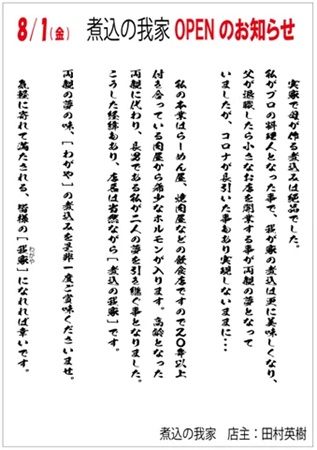 8/1(金) 煮込の我家 OPENのお知らせ
実家で母が作る煮込みは絶品でした。
私がプロの料理人となった事で、我が家の煮込は更に美味しくなり、
父が退職したら小さなお店を開業する事が両親の夢となって
いましたが、コロナが長引いた事もあり実現しないままに・・・
私の本業はらーめん屋、焼肉屋などの飲食店ですので20年以上
付き合っている肉屋から希少なホルモンが入ります。高齢となった
両親に代わり、長男である私が二人の夢を引き継ぐ事となりました。
こうした経緯もあり、店名は当然ながら【煮込の我家】です。
両親の夢の味、【わがや】の煮込みを是非一度ご賞味くださいませ。
気軽に寄れて満たされる、皆様の【我家】になれれば幸いです。
わがや
煮込の我家 店主：田村英樹